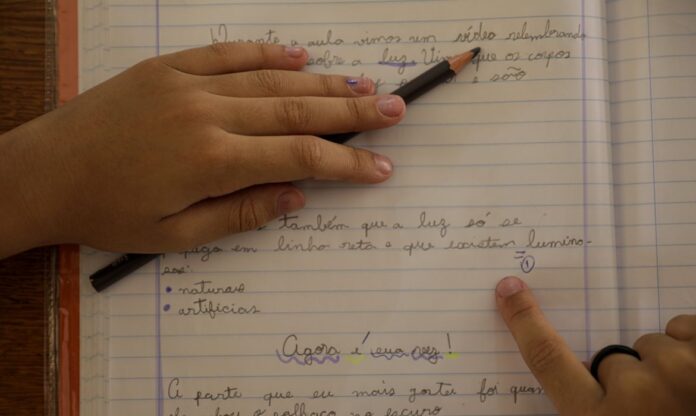 Durante a aula vimos um vídeo relembrando
sobre a luz. que os corpos
e são
também que a luz só se
em linha reta e que existem lumino-
sos:
• naturais
• artifícias
①
Agora é sua vez!
A parte que eu mais gostei foi
o palhaço no escuro